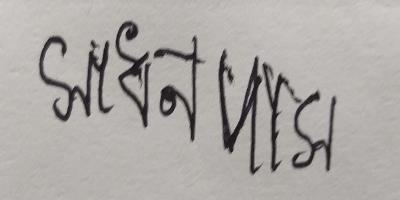 সাধন দাস